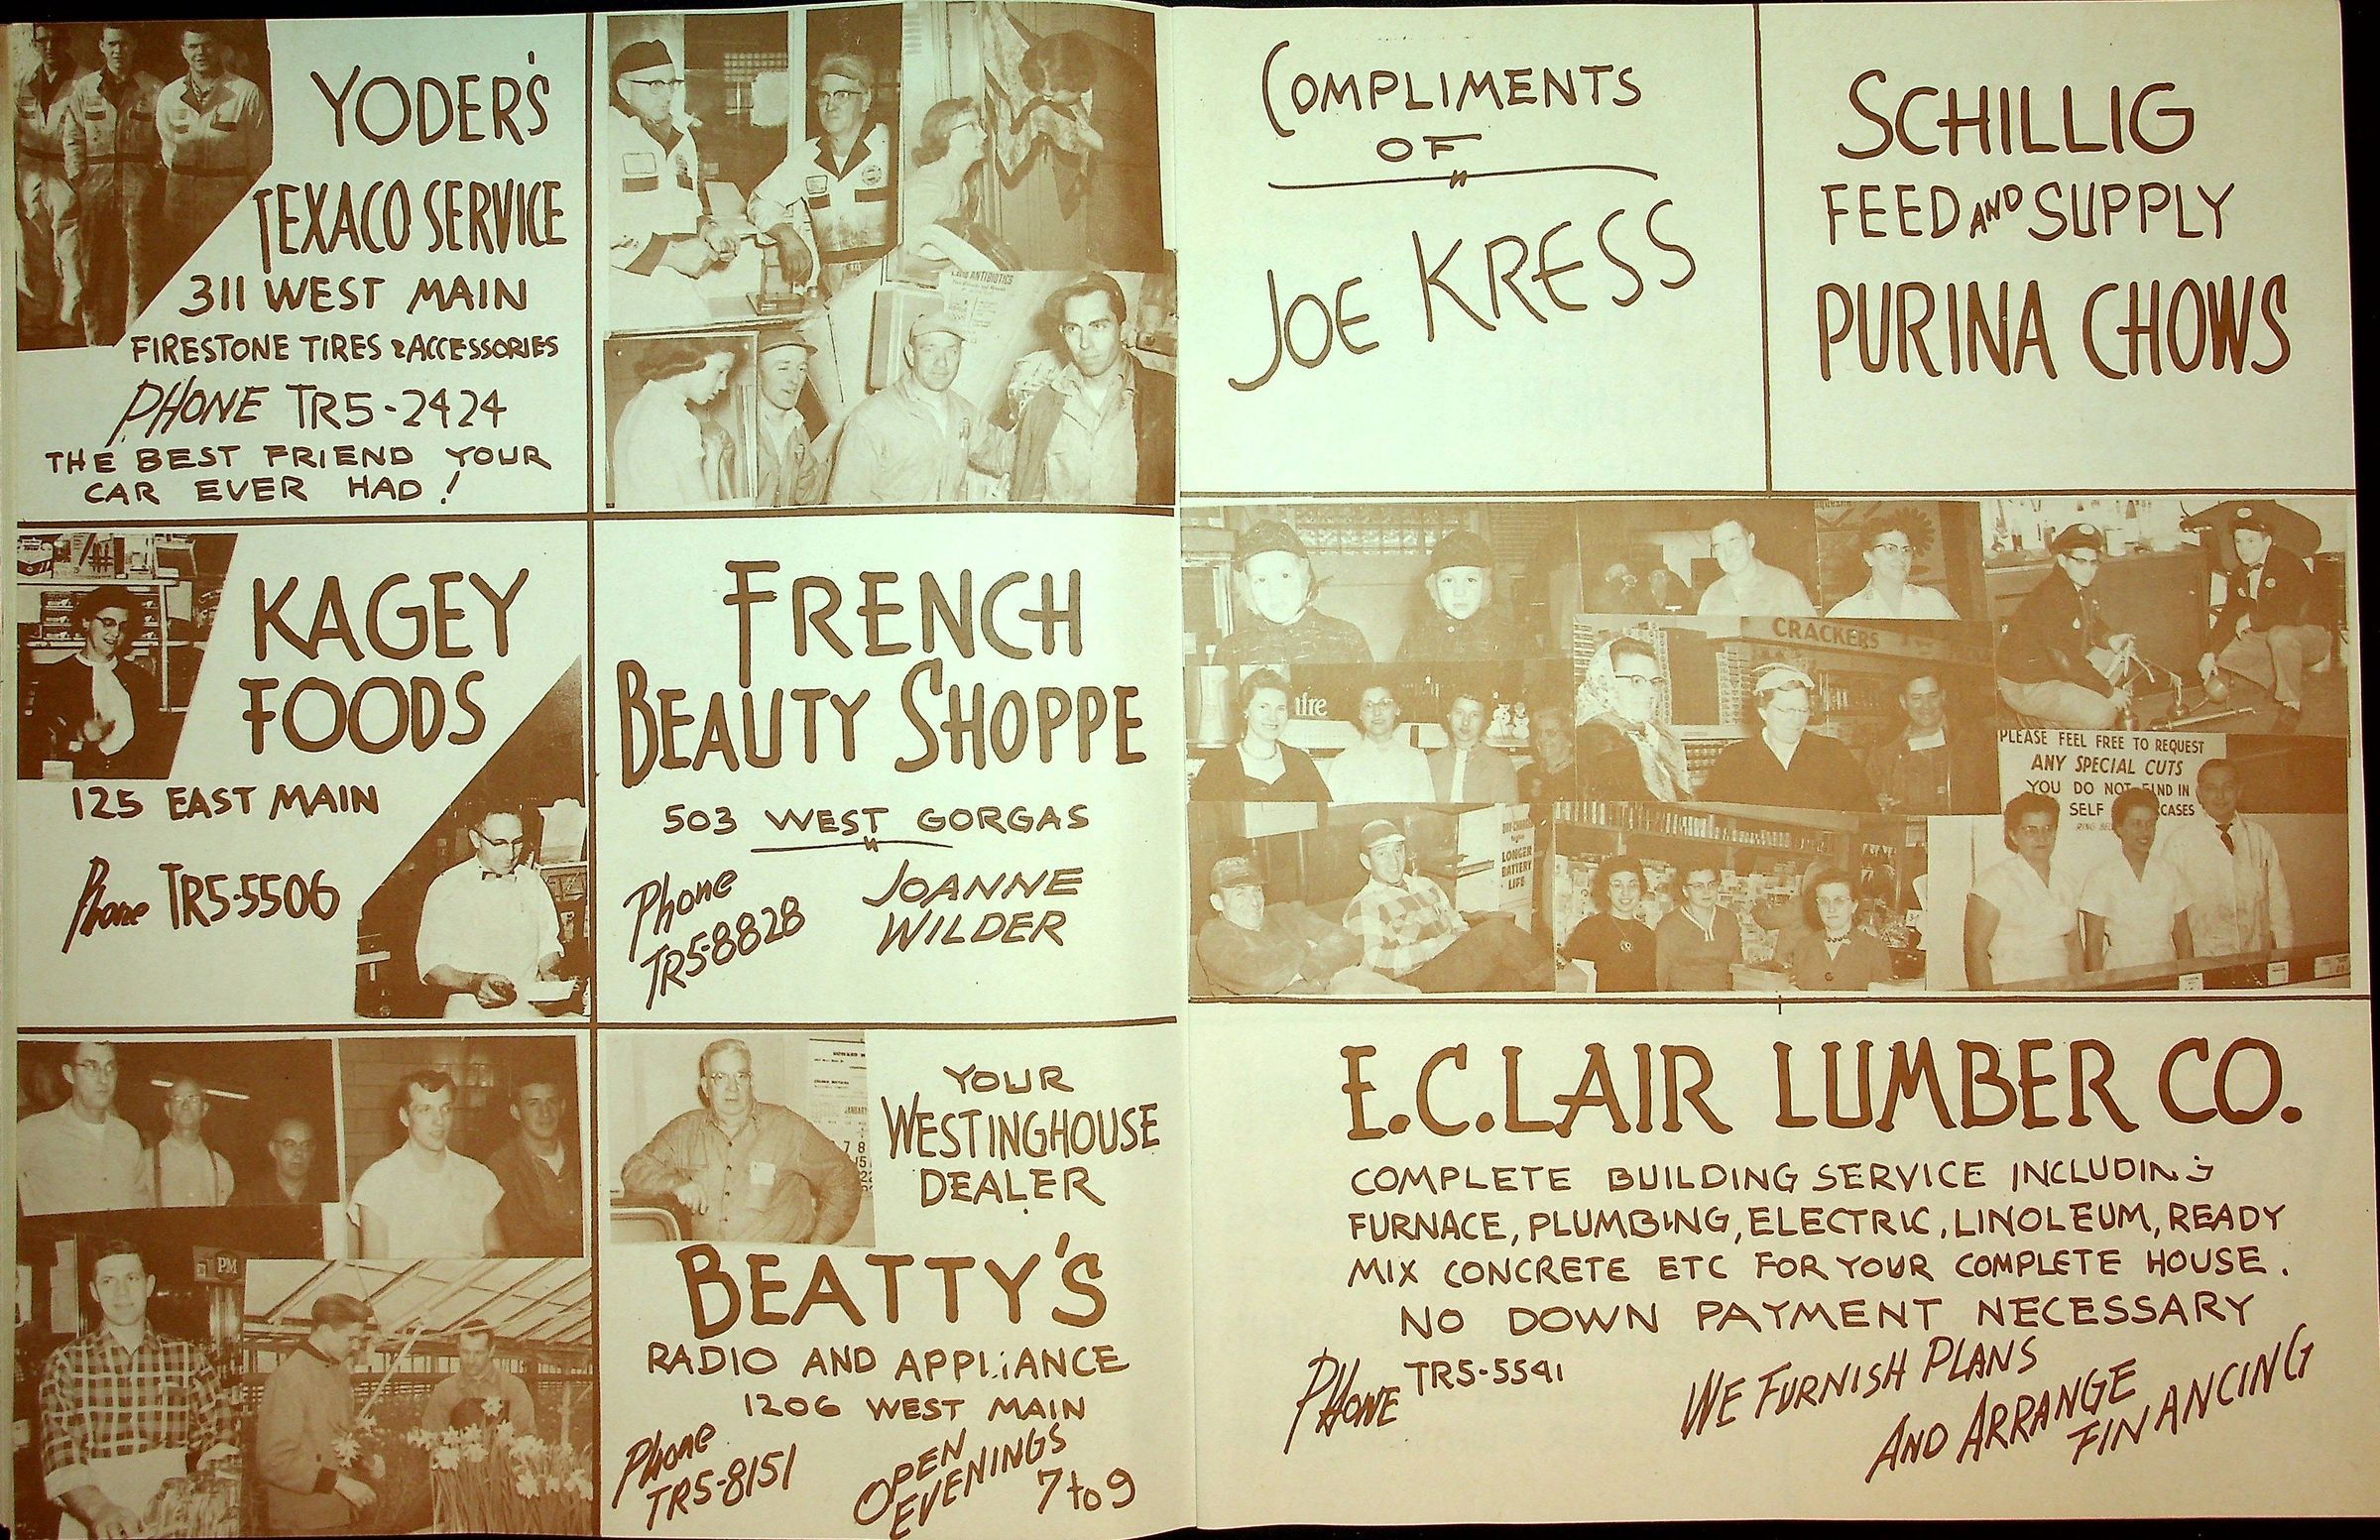 YODER'S
TEXACO SERVICE
311 WEST MAIN
FIRESTONE TIRES & ACCESSORIES
PHONE TR5-2424
THE BEST FRIEND YOUR
CAR EVER HAD!
ANTIBIOTICS
KAGEY
FOODS
125 EAST MAIN
Phone TR5-5506
FRENCH
BEAUTY SHOPPE
503 WEST GORGAS
Phone
TR5-8828
JOANNE
WILDER
PM
YOUR
WESTINGHOUSE
DEALER
BEATTY'S
RADIO AND APPLIANCE
1206 WEST MAIN
Phone
TR5-8151
OPEN
EVENINGS
7 to 9
COMPLIMENTS
OF
JOE KRESS
SCHILLIG
FEED AND SUPPLY
PURINA CHOWS
CRACKERS
PLEASE FEEL FREE TO REQUEST
ANY SPECIAL CUTS
YOU DO NOT FIND IN
SELF CASES
LONGER
BATTERY
LIFE
E.C. LAIR LUMBER CO.
COMPLETE BUILDING SERVICE INCLUDING
FURNACE, PLUMBING, ELECTRIC, LINOLEUM, READY
MIX CONCRETE ETC FOR YOUR COMPLETE HOUSE.
NO DOWN PAYMENT NECESSARY
PHONE TR5-5541
WE FURNISH PLANS
AND ARRANGE
FINANCING